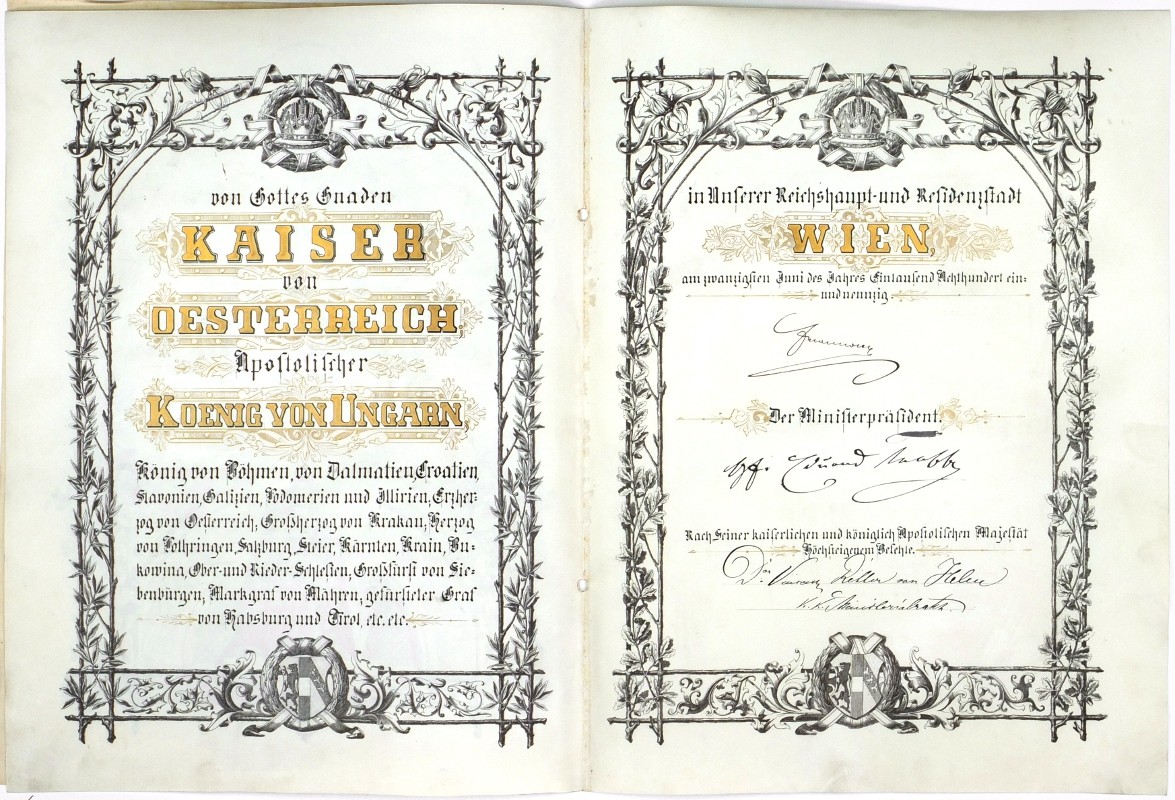 von Gottes Gnaden
KAISER
von
OESTERREICH,
Apostolischer
KOENIG VON UNGARN,
König von Böhmen, von Dalmatien, Croatien,
Slavonien, Galizien, Lodomerien und Illirien, Erzher-
zog von Oesterreich, Großherzog von Krakau, Herzog
von Lothringen, Salzburg, Steier, Kärnten, Krain, Bu-
kowina, Ober- und Nieder-Schlesien, Großfürst von Sie-
benbürgen, Markgraf von Mähren, gefürsteter Graf
von Habsburg und Tirol, etc. etc.
in Unserer Reichshaupt- und Residenzstadt
WIEN,
am zwanzigsten Juni des Jahres Eintausend Achthundert ein-
und neunzig.
Der Ministerpräsident.
Gf. Eduard Taaffe
Nach Seiner kaiserlichen und königlich Apostolischen Majestät
Höchsteigenem Befehle.
Dr. Keller von
k. k. Ministerialrath